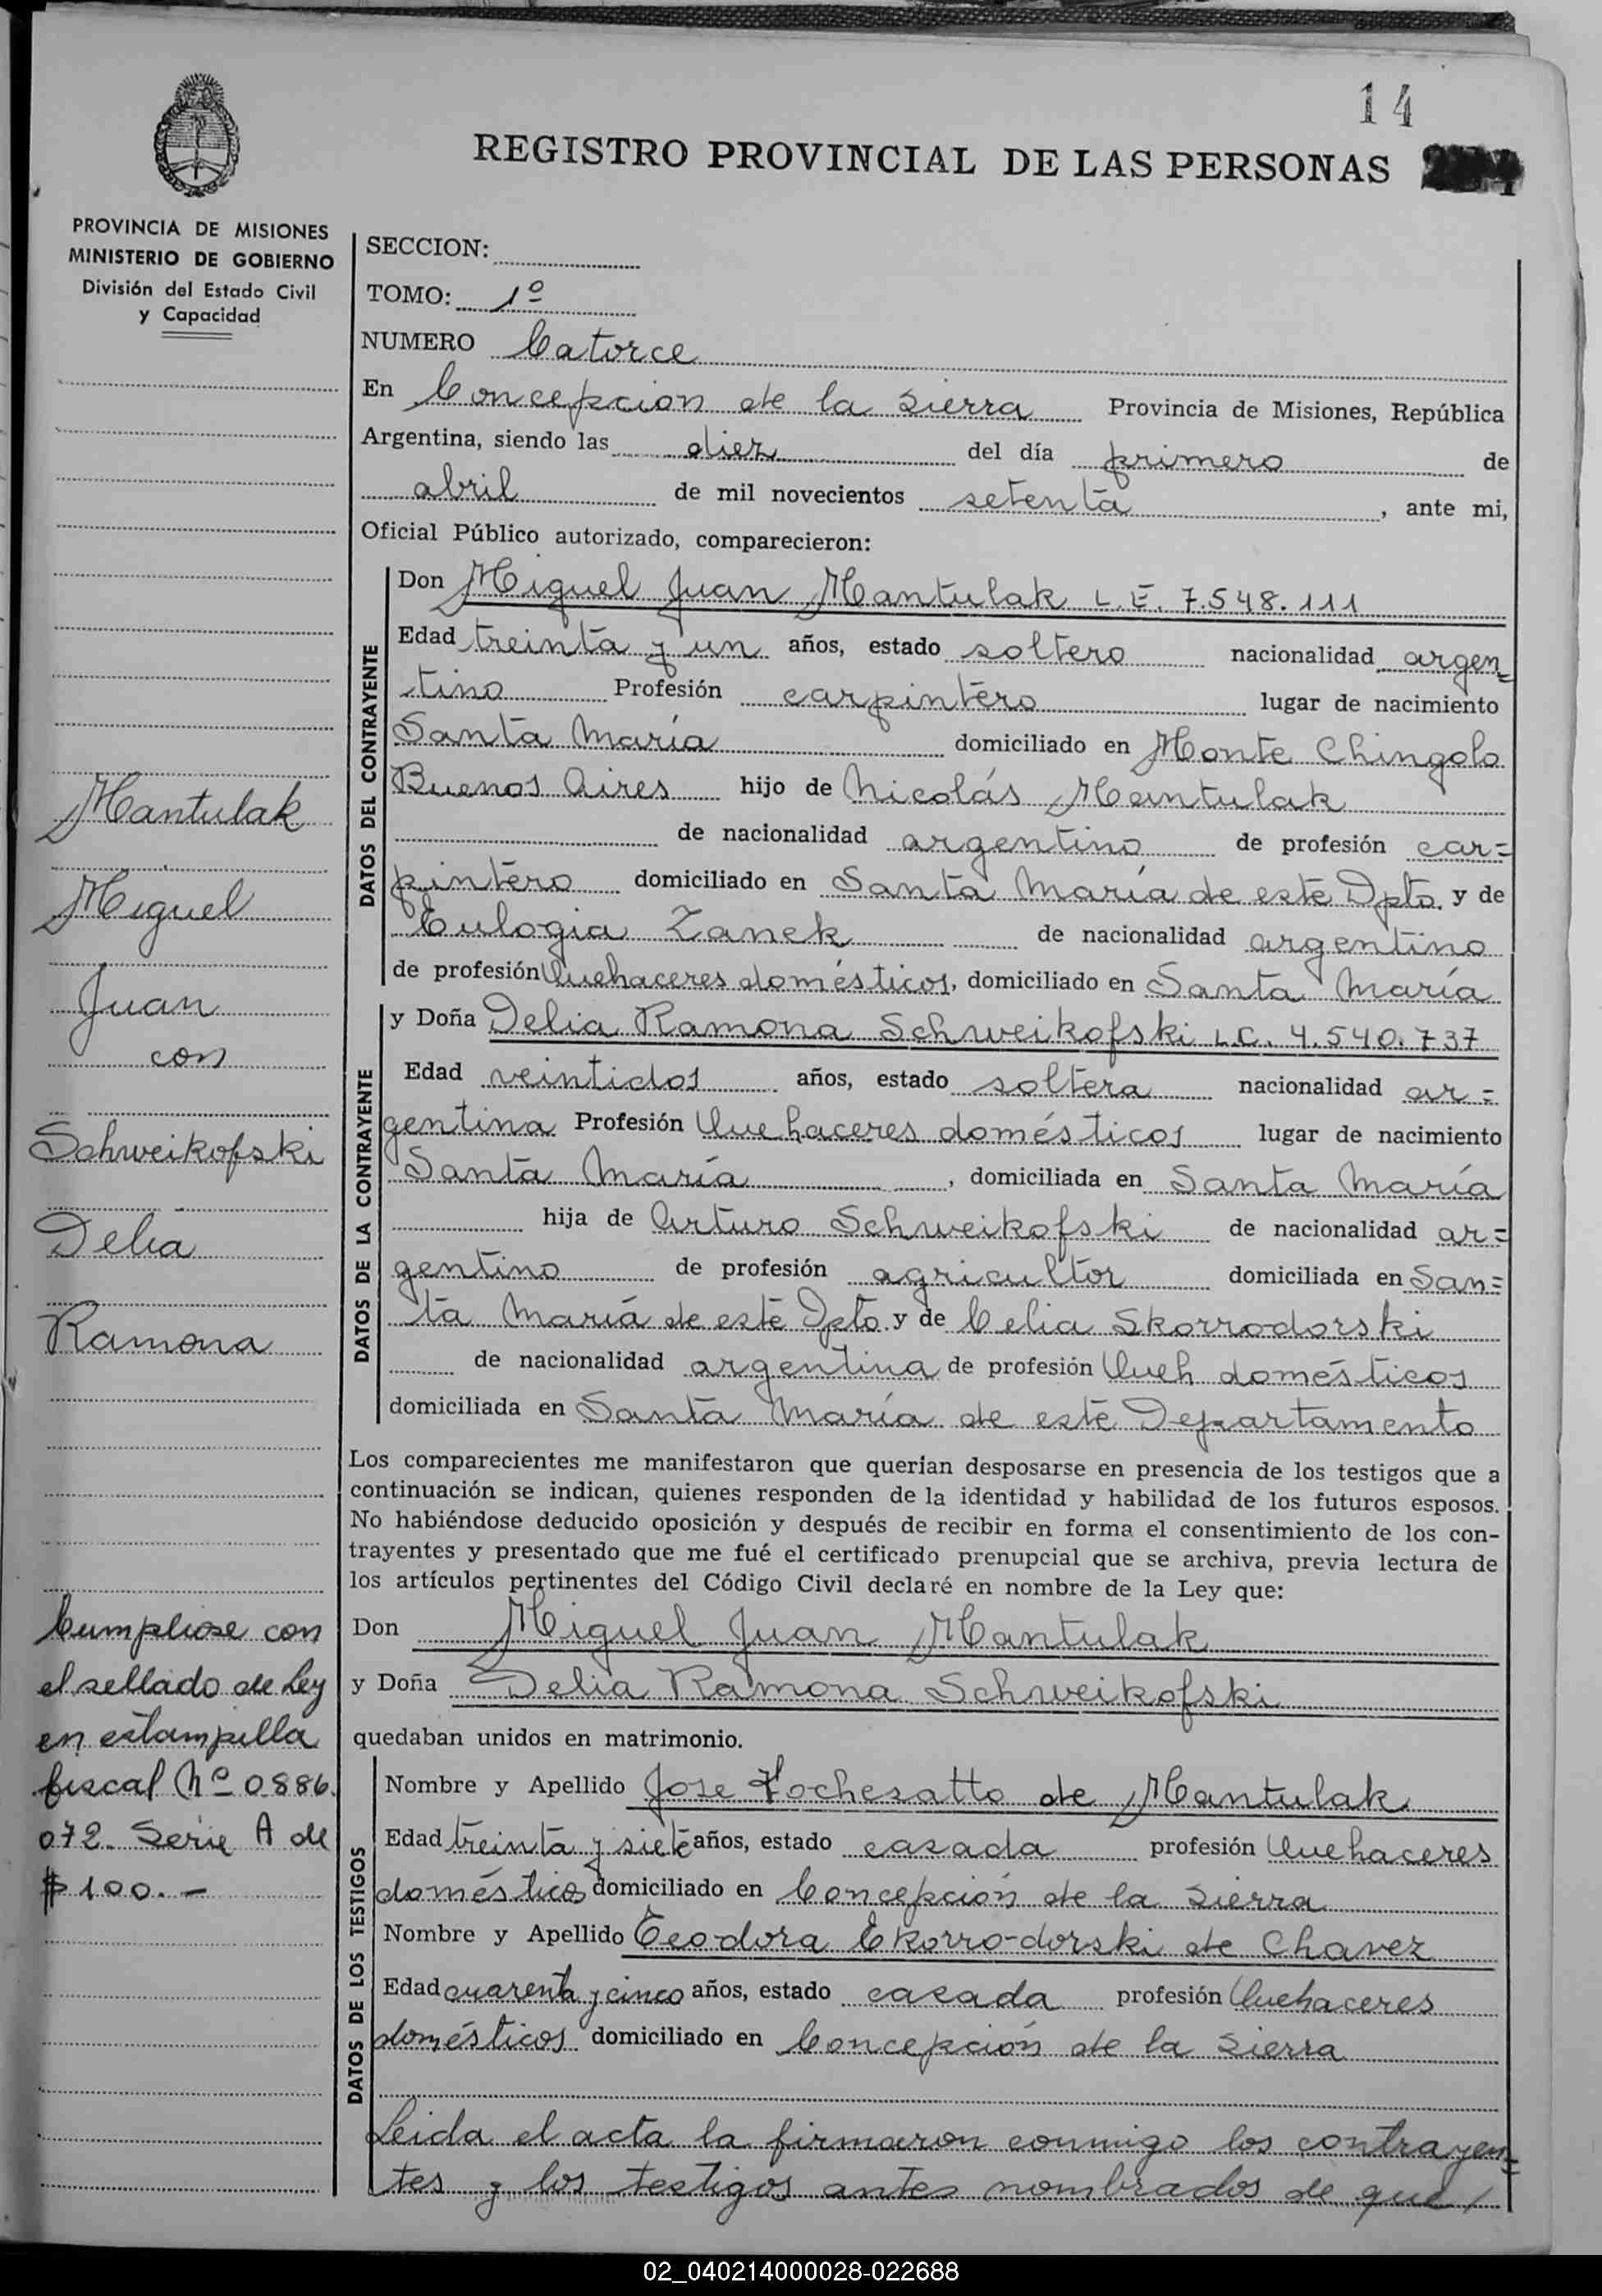 14
REGISTRO PROVINCIAL DE LAS PERSONAS
PROVINCIA DE MISIONES
MINISTERIO DE GOBIERNO
División del Estado Civil
y Capacidad
SECCION:
TOMO: 1º
NUMERO Catorce
En Concepcion de la Sierra Provincia de Misiones, República
Argentina, siendo las diez del día primero de
abril de mil novecientos setenta, ante mi,
Oficial Público autorizado, comparecieron:
DATOS DEL CONTRAYENTE
Don Miguel Juan Mantulak L.E. 7.548.111
Edad treinta y un años, estado soltero nacionalidad argen=
tino Profesión carpintero lugar de nacimiento
Santa María domiciliado en Monte Chingolo
Buenos Aires hijo de Nicolás Mantulak
de nacionalidad argentino de profesión car=
pintero domiciliado en Santa María de este Dpto. y de
Eulogia Zanek de nacionalidad argentino
de profesión Quehaceres domésticos, domiciliado en Santa María
DATOS DE LA CONTRAYENTE
y Doña Delia Ramona Schweikofski L.C. 4.540.737
Edad veintidos años, estado soltera nacionalidad ar=
gentina Profesión Quehaceres domésticos lugar de nacimiento
Santa María, domiciliada en Santa María
hija de Arturo Schweikofski de nacionalidad ar=
gentino de profesión agricultor domiciliada en San=
ta María de este Dpto. y de Celia Skorrodorski
de nacionalidad argentina de profesión Queh domésticos
domiciliada en Santa María de este Departamento
Los comparecientes me manifestaron que querían desposarse en presencia de los testigos que a
continuación se indican, quienes responden de la identidad y habilidad de los futuros esposos.
No habiéndose deducido oposición y después de recibir en forma el consentimiento de los con-
trayentes y presentado que me fué el certificado prenupcial que se archiva, previa lectura de
los artículos pertinentes del Código Civil declaré en nombre de la Ley que:
Don Miguel Juan Mantulak
y Doña Delia Ramona Schweikofski
quedaban unidos en matrimonio.
DATOS DE LOS TESTIGOS
Nombre y Apellido Jose Vochesatto de Mantulak
Edad treinta y siete años, estado casada profesión Quehaceres
domésticos domiciliado en Concepción de la Sierra
Nombre y Apellido Teodora Ekorro-dorski de Chavez
Edad cuarenta y cinco años, estado casada profesión Quehaceres
domésticos domiciliado en Concepción de la Sierra
Leida el acta la firmaron conmigo los contrayen=
tes y los testigos antes nombrados de que/
Mantulak
Miguel
Juan
con
Schweikofski
Delia
Ramona
Cumpliose con
el sellado de Ley
en estampilla
fiscal Nº 0886.
072. Serie A de
$ 100.-
02_040214000028-022688